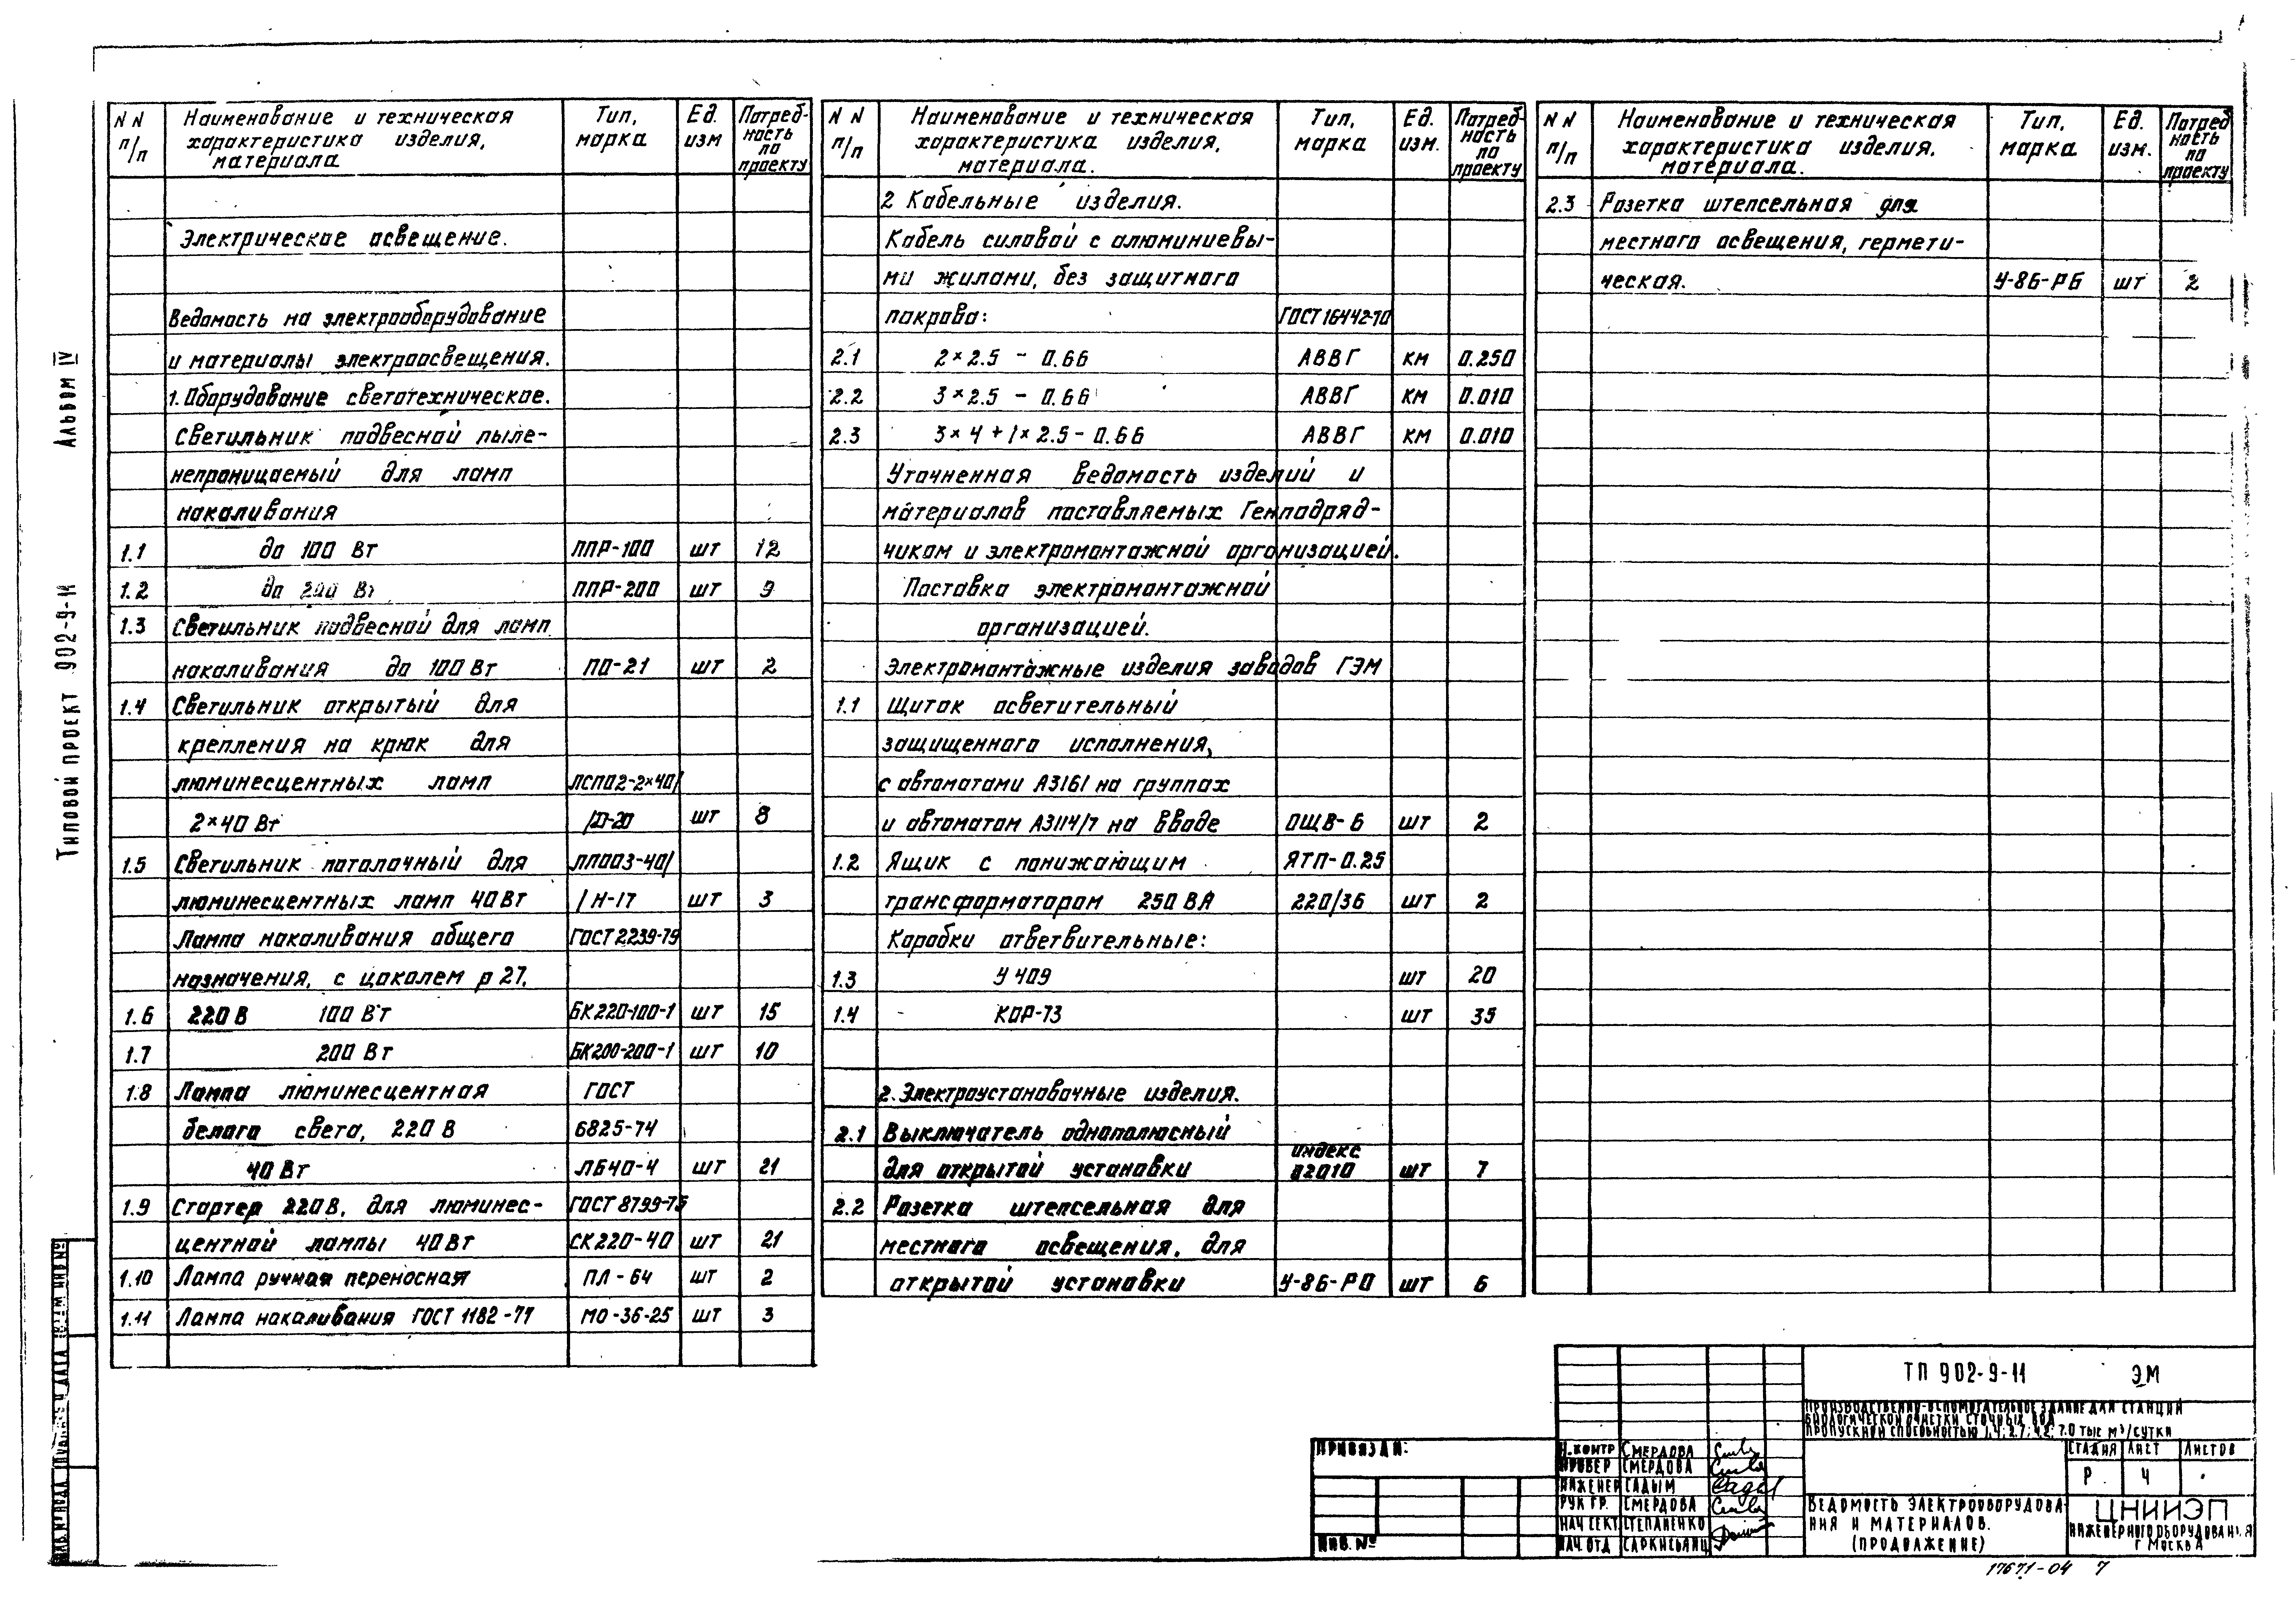 Альбом IV
Типовой проект 902-9-11
NN п/п
Наименование и техническая характеристика изделия, материала
Тип, марка
Ед. изм
Потреб-ность по проекту
Электрическое освещение.
Ведомость на электрооборудование
и материалы электроосвещения.
1. Оборудование светотехническое.
Светильник подвесной пыле-
непроницаемый для ламп
накаливания
1.1 до 100 Вт ППР-100 шт 12
1.2 до 200 Вт ППР-200 шт 9
1.3 Светильник подвесной для ламп
накаливания до 100 Вт ПО-21 шт 2
1.4 Светильник открытый для
крепления на крюк для
люминесцентных ламп ЛСПО2-2×40/
2×40 Вт /Д-20 шт 8
1.5 Светильник потолочный для ЛПО03-40/
люминесцентных ламп 40 Вт /Н-17 шт 3
Лампа накаливания общего ГОСТ 2239-79
назначения, с цоколем р 27,
1.6 220 В 100 Вт БК220-100-1 шт 15
1.7 200 Вт БК200-200-1 шт 10
1.8 Лампа люминесцентная ГОСТ
белого света, 220 В 6825-74
40 Вт ЛБ40-4 шт 21
1.9 Стартер 220 В, для люминес- ГОСТ 8799-75
центной лампы 40 Вт СК220-40 шт 21
1.10 Лампа ручная переносная ПЛ-64 шт 2
1.11 Лампа накаливания ГОСТ 1182-77 МО-36-25 шт 3
NN п/п
Наименование и техническая характеристика изделия, материала.
Тип, марка
Ед. изм.
Потреб-ность по проекту
2 Кабельные изделия.
Кабель силовой с алюминиевы-
ми жилами, без защитного
покрова: ГОСТ 16442-70
2.1 2×2.5 - 0.66 АВВГ км 0.250
2.2 3×2.5 - 0.66 АВВГ км 0.010
2.3 3×4+1×2.5-0.66 АВВГ км 0.010
Уточненная ведомость изделий и
материалов поставляемых Генподряд-
чиком и электромонтажной организацией.
Поставка электромонтажной
организацией.
Электромонтажные изделия заводов ГЭМ
1.1 Щиток осветительный
защищенного исполнения,
с автоматами А3161 на группах
и автоматом А3114/7 на вводе ОЩВ-6 шт 2
1.2 Ящик с понижающим ЯТП-0.25
трансформатором 250 ВА 220/36 шт 2
Коробки ответвительные:
1.3 У 409 шт 20
1.4 КОР-73 шт 35
2. Электроустановочные изделия.
2.1 Выключатель однополюсный
для открытой установки индекс 02010 шт 7
2.2 Розетка штепсельная для
местного освещения, для
открытой установки У-86-РО шт 6
NN п/п
Наименование и техническая характеристика изделия, материала.
Тип, марка
Ед. изм.
Потреб ность по проекту
2.3 Розетка штепсельная для
местного освещения, гермети-
ческая. У-86-РБ шт 2
Привязан:
Инв. №
Н. контр Смердова
Провер Смердова
Инженер Гадым
Рук гр. Смердова
Нач сект Степаненко
Нач отд Саркисьянц
ТП 902-9-11 ЭМ
Производственно-вспомогательное здание для станций
биологической очистки сточных вод
пропускной способностью 1,4; 2.7; 4.2; 7.0 тыс м³/сутки
Стадия Лист Листов
Р 4
Ведомость электрооборудова-
ния и материалов.
(продолжение)
ЦНИИЭП
инженерного оборудования
г Москва
17671-04 7